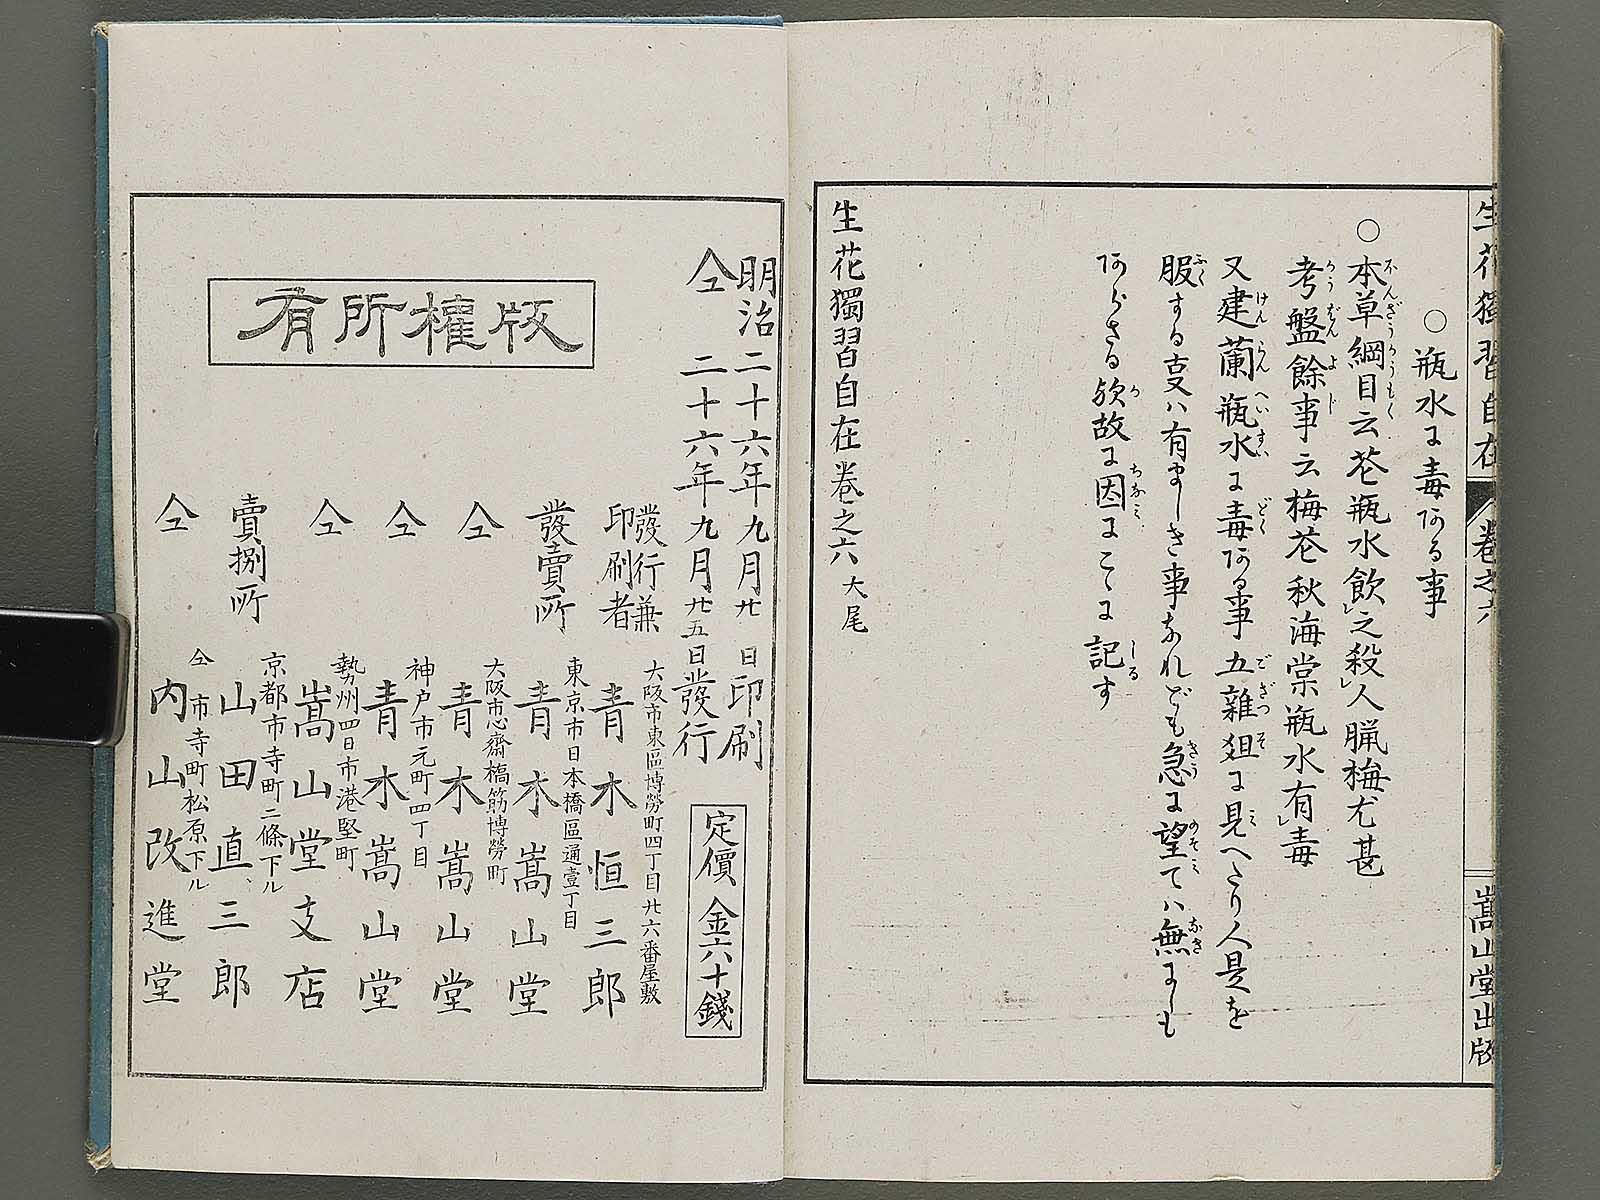 生花獨習自在
卷之六
嵩山堂出版
○瓶水に毒ある事
○本草綱目云花瓶水飲之殺人臘梅尤甚
考盤餘事云梅花秋海棠瓶水有毒
又建蘭瓶水に毒ある事五雜爼に見へたり人是を
服する叓ハ有ましき事なれども急に望てハ無にしも
あらざる歟故に因にこゝに記す
生花獨習自在卷之六大尾
明治二十六年九月廿日印刷
仝二十六年九月廿五日發行
定價金六十錢
版權所有
大阪市東區博勞町四丁目廿六番屋敷
發行兼印刷者 青木恒三郎
東京市日本橋區通壹丁目
發賣所 青木嵩山堂
大阪市心齋橋筋博勞町
仝 青木嵩山堂
神戸市元町四丁目
仝 青木嵩山堂
勢州四日市港竪町
仝 嵩山堂支店
京都市寺町二條下ル
賣捌所 山田直三郎
仝市寺町松原下ル
仝 内山改進堂